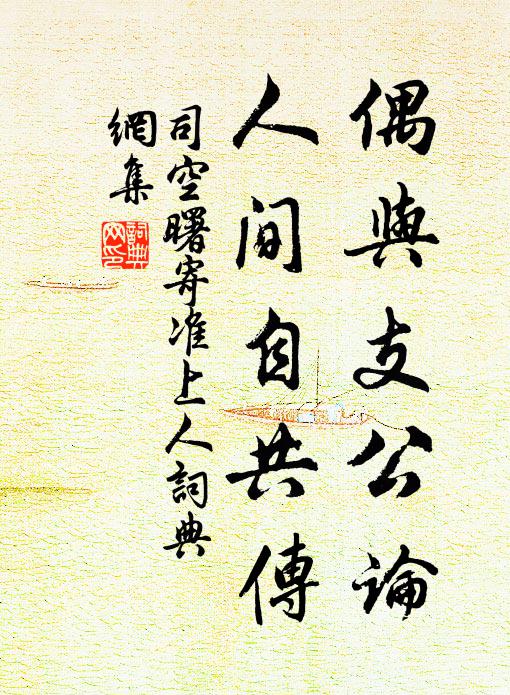 偶與支公論
人间自共傳
司空曙寄准上人詞典
網集
詞典
网印